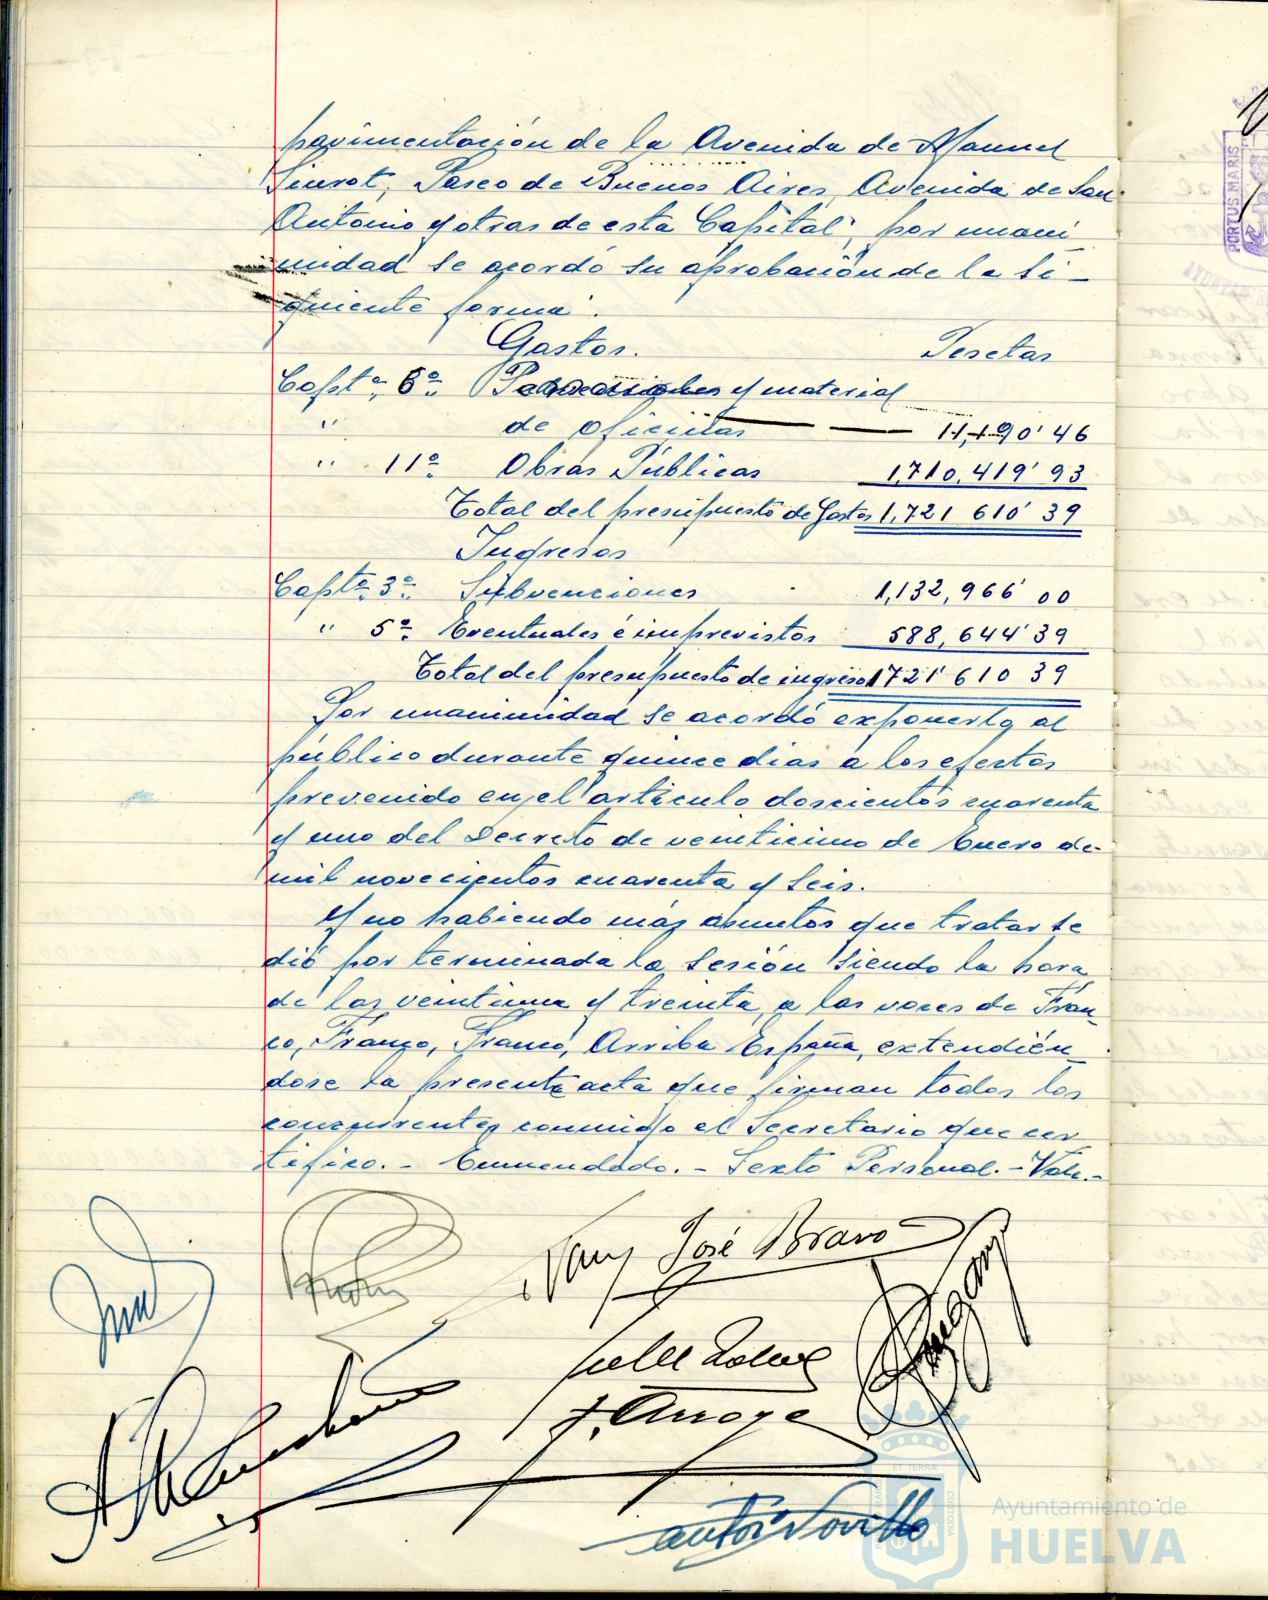 pavimentación de la Avenida de Manuel
Siurot, Paseo de Buenos Aires, Avenida de San
Antonio y otras de esta Capital, por unani-
midad se acordó su aprobación de la si-
guiente forma:
Gastos. Pesetas
Capto. 6º. Personal y material
" de oficinas 11,190'46
" 11º Obras Públicas 1,710,419'93
Total del presupuesto de Gastos 1,721 610'39
Ingresos
Capto. 3º. Subvenciones 1,132,966'00
" 5º. Eventuales é imprevistos 588,644'39
Total del presupuesto de ingresos 1721'610 39
Por unanimidad se acordó exponerlo al
público durante quince dias a los efectos
prevenido en el articulo doscientos cuarenta
y uno del Decreto de veinticinco de Enero de
mil novecientos cuarenta y seis.
Y no habiendo más asuntos que tratar se
dió por terminada la sesión siendo la hora
de las veintiuna y treinta, a las voces de Fran-
co, Franco, Franco, Arriba España, extendién-
dose la presente acta que firman todos los
concurrentes conmigo el Secretario que cer-
tifico.- Enmendado.- Sexto Personal.- Vale.-
José Bravo
antº Novillo
PORTUS MARIS
ET TERRÆ
CUSTODIA
Ayuntamiento de
HUELVA